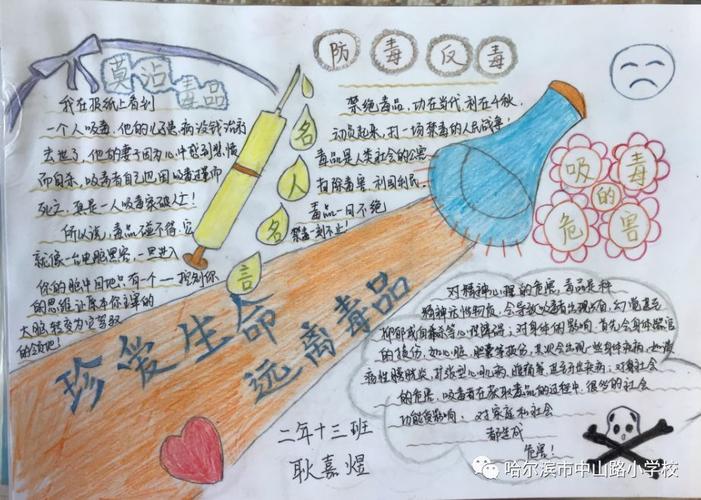 防毒反毒
莫沾毒品
我在报纸上看到
一个人吸毒，他的父母患病没钱治病
去世了，他的妻子因为心中感到悲愤
而自杀，吸毒者自己也因吸毒过量而
死亡，真是一人吸毒家破人亡！
所以说，毒品碰不得，它
就像一台电脑黑客，一旦进入
你的脑中目地只有一个——控制你
的思维让原本你主宰的
大脑转变为它驾驭
的领地！
名人名言
禁绝毒品，功在当代，利在千秋，
动员起来，打一场禁毒的人民战争！
毒品是人类社会的公害
扫除毒害，利国利民。
毒品一日不绝
禁毒一刻不止！
吸毒的危害
珍爱生命
远离毒品
对精神心理的危害，毒品是种
精神活性物质，会导致吸毒者出现幻
抑郁或自杀等心理障碍；对身体的影响，首先会身体器官
的损伤，如心脏，
的危害，吸毒者在获取毒品的过程中，很多的社会
功能受影响，对家庭和社会
都造成
危害！
二年十三班
耿嘉煜
哈尔滨市中山路小学校